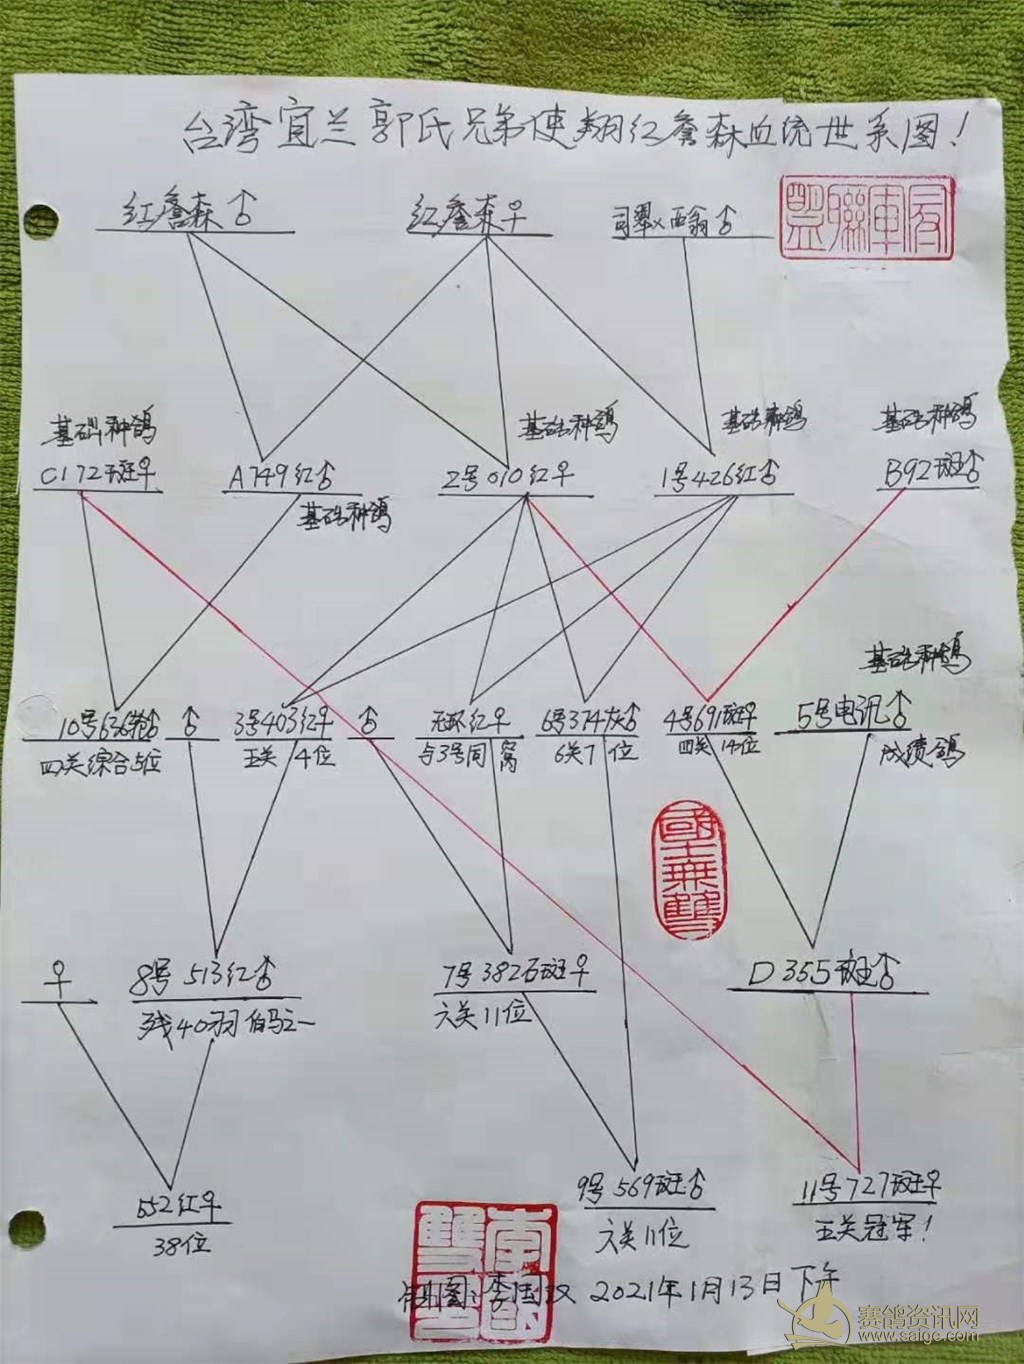 台湾宜兰郭氏兄弟使翔红詹森血统世系图！
红詹森♂
红詹森♀
司翠x西翁♂
盟聯軍友
基础种鸽
C172斑♀
A749红♂
基础种鸽
基础种鸽
2号010红♀
基础种鸽
1号426红♂
基础种鸽
B92斑♂
10号636 ♂
四关综合5位
♂
3号403红♀
五关 4位
♂
无环红♀
与3号同窝
6号374灰♂
6关7位
4号691斑♀
四关14位
基础种鸽
5号电讯♂
成绩鸽
國士無雙
♀
8号513红♂
残40羽伯马之一
7号382石斑♀
六关11位
D355斑♂
552红♀
38位
9号569斑♂
六关11位
11号727斑♀
五关冠军！
制图：李国双 2021年1月13日下午
赛鸽资讯网
www.saige.com